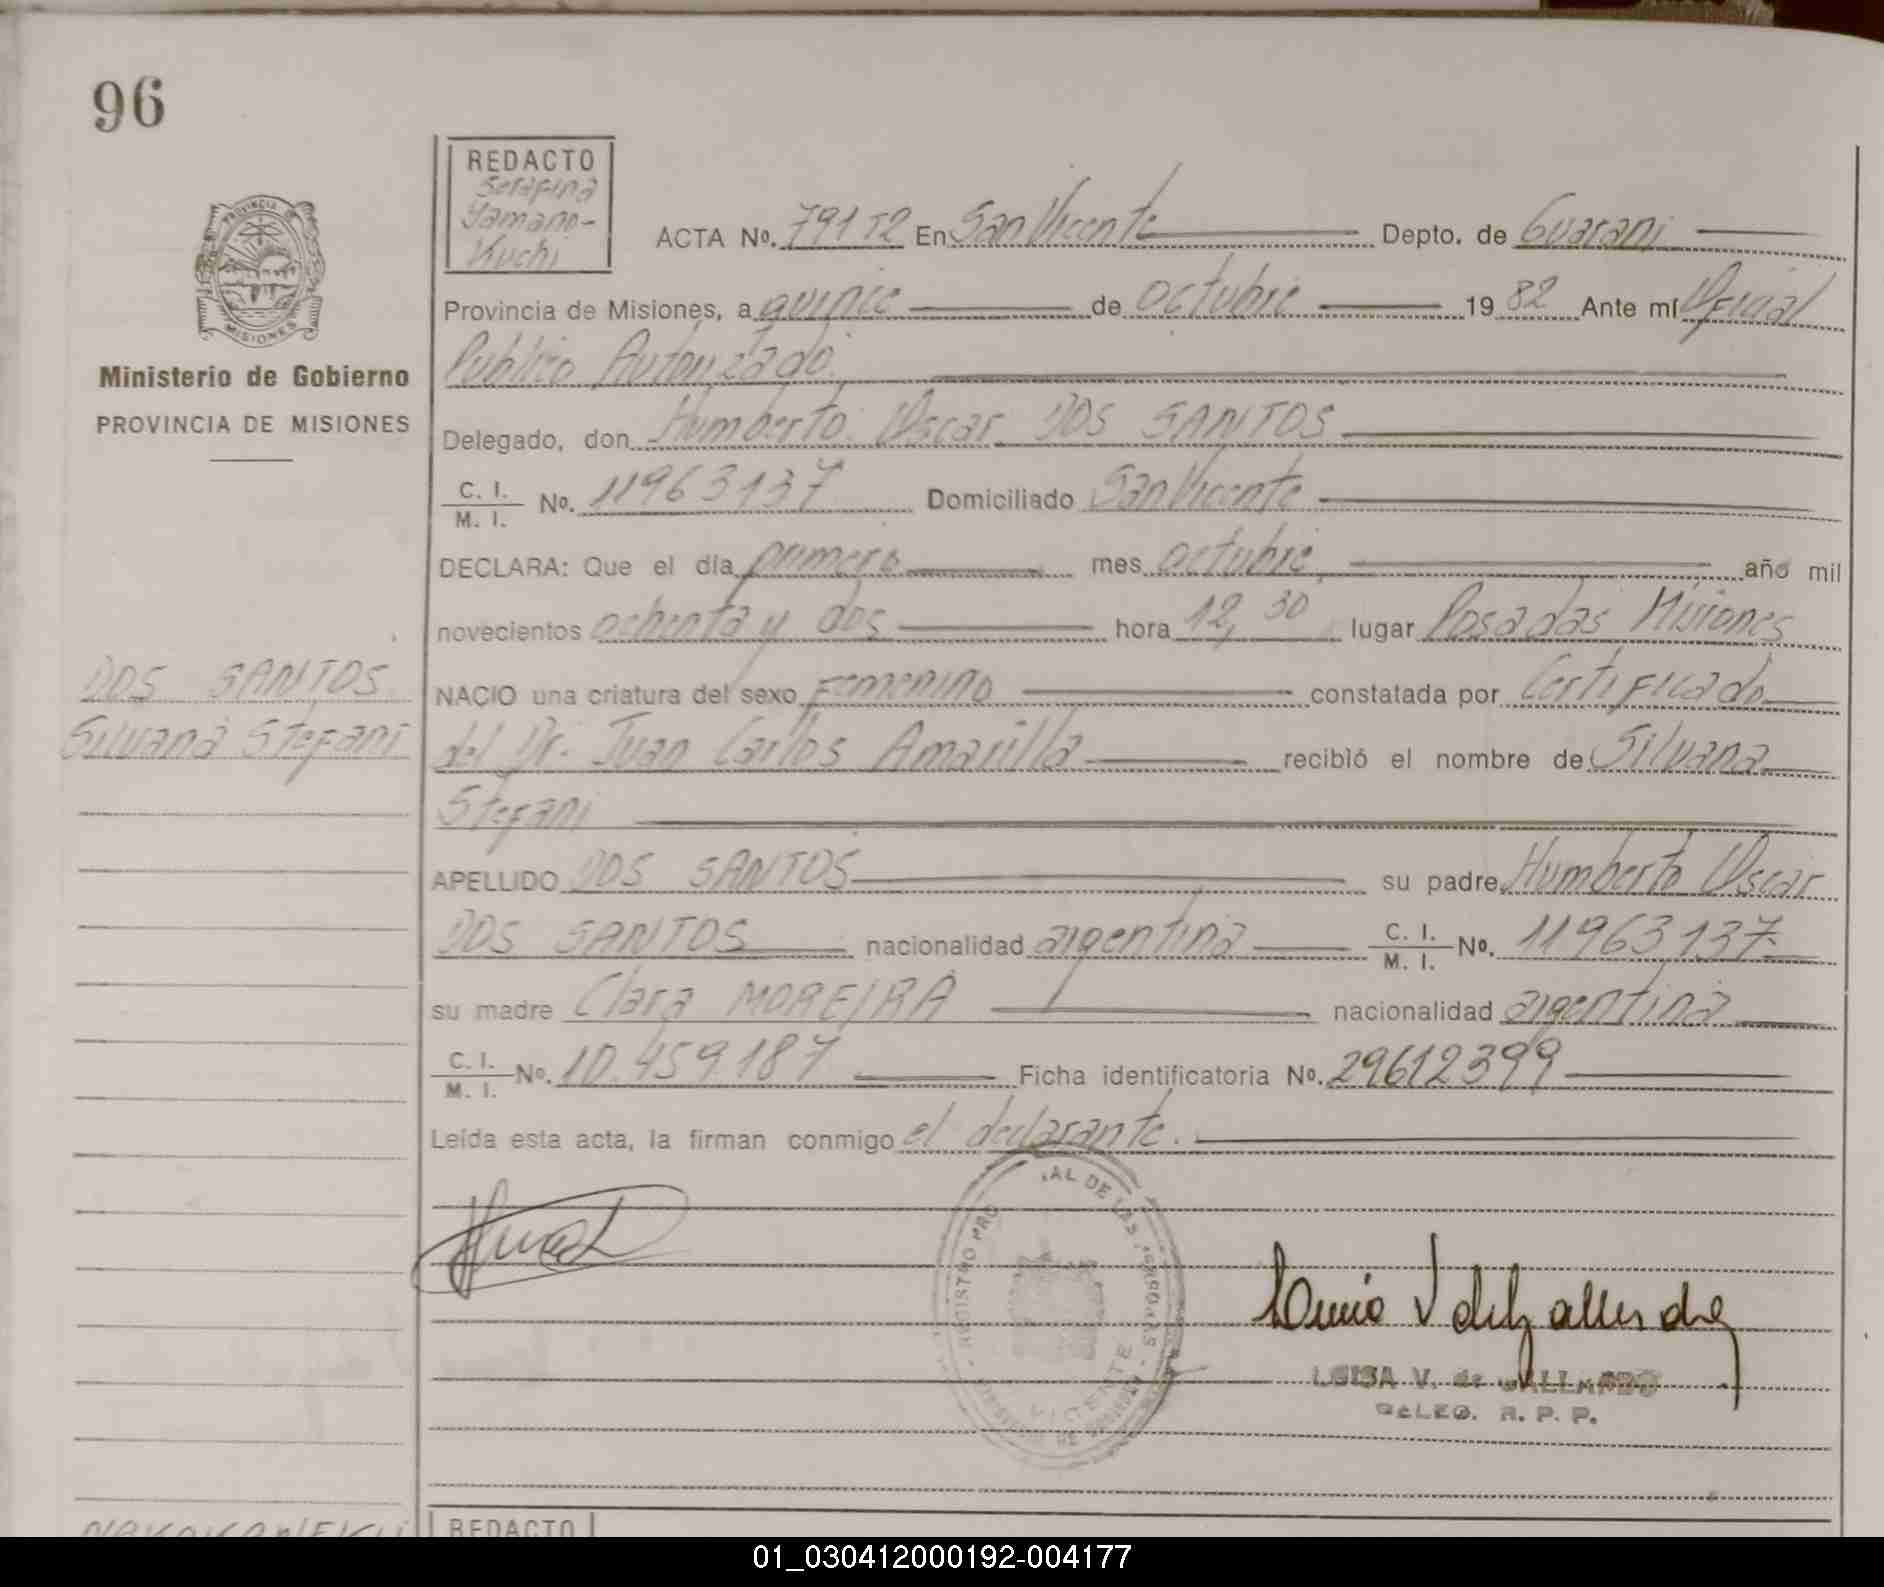 96
REDACTO
Serafina
Yamano-
Kuchi
PROVINCIA DE
MISIONES
Ministerio de Gobierno
PROVINCIA DE MISIONES
ACTA Nº. 791 T2 En San Vicente Depto. de Guarani
Provincia de Misiones, a quince de octubre 19 82 Ante mí Oficial
Publico Autorizado.
Delegado, don Humberto Oscar DOS SANTOS
C. I. / M. I. Nº. 11963137 Domiciliado San Vicente
DECLARA: Que el día primero mes octubre año mil
novecientos ochenta y dos hora 12,30 lugar Posadas Misiones
NACIO una criatura del sexo femenino constatada por Certificado
del Dr. Juan Carlos Amarilla recibió el nombre de Silvana
Stefani
APELLIDO DOS SANTOS su padre Humberto Oscar
DOS SANTOS nacionalidad argentina C. I. / M. I. Nº. 11963137
su madre Clara MOREIRA nacionalidad argentina
C. I. / M. I. Nº. 10.459.187 Ficha identificatoria Nº. 29612399
Leída esta acta, la firman conmigo el declarante.
DOS SANTOS
Silvana Stefani
REGISTRO PRO AL DE LAS PERSONAS
VICENTE
LUISA V. de GALLARDO
DELEG. R. P. P.
REDACTO
01_030412000192-004177